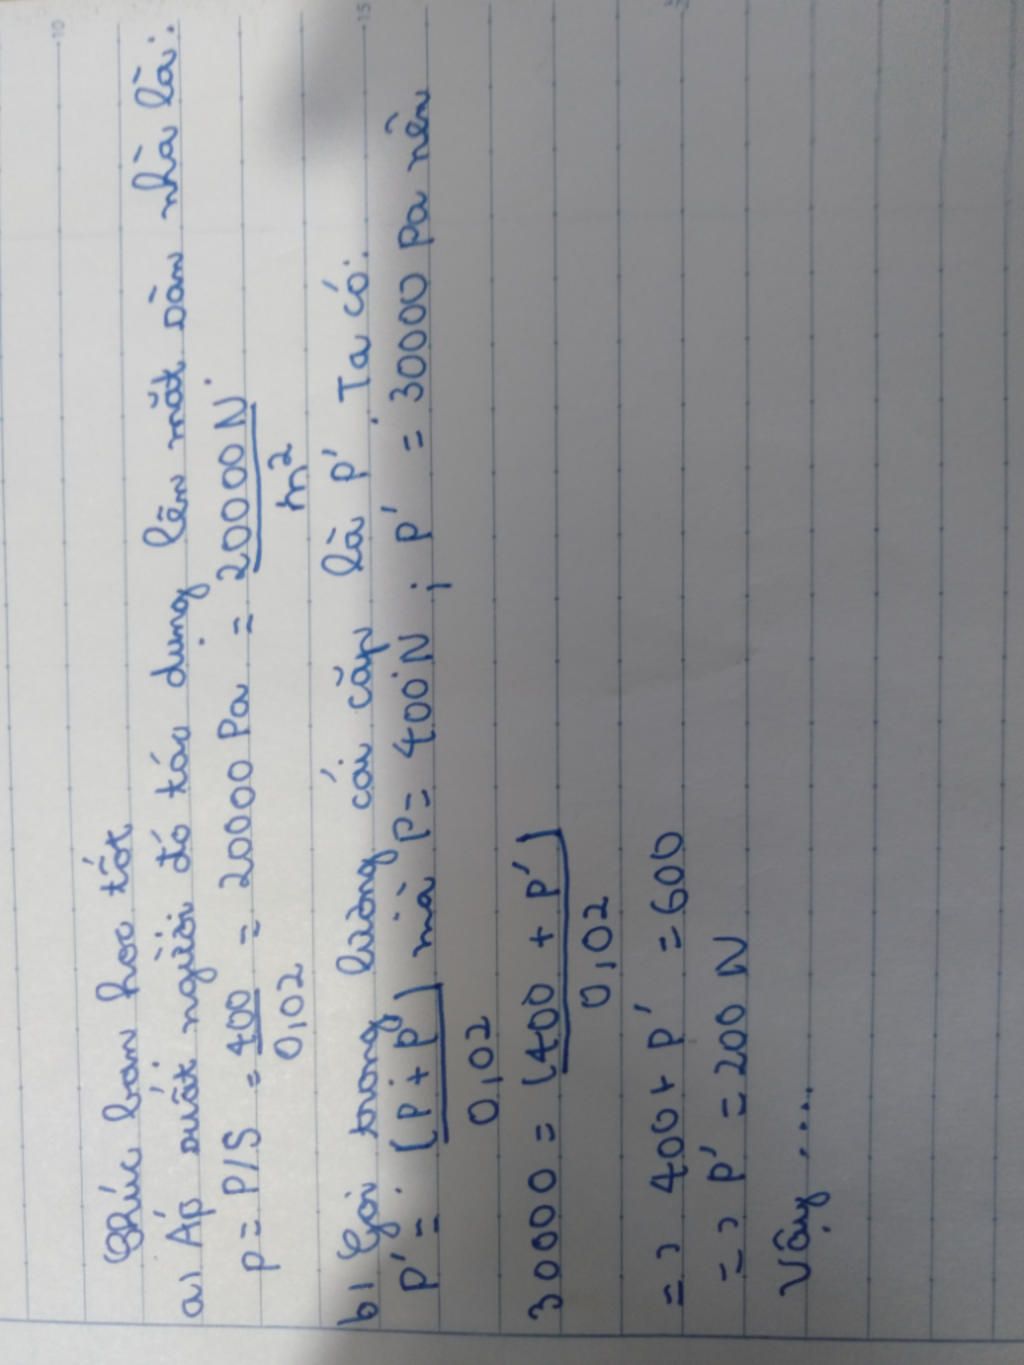 Chúc bạn học tốt
a) Áp suất người đó tác dụng lên mặt sàn nhà là:
p = P/S = 400/0,02 = 20000 Pa = 20000N/m²
b) Gọi trọng lượng cái cặp là p'. Ta có:
p' = (p + p')/0,02 mà p = 400N; p' = 30000 Pa nên
30000 = (400 + p')/0,02
=> 400 + p' = 600
=> p' = 200 N
Vậy ....